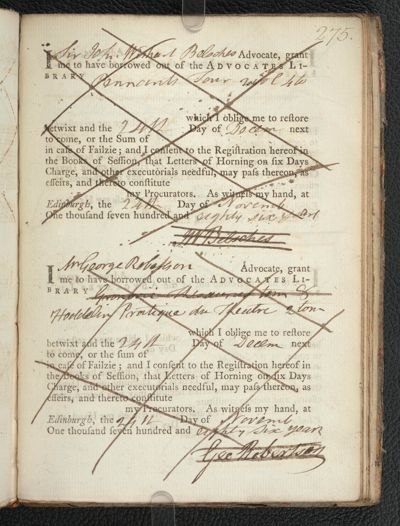 275.
I Sir John Wishart Belsches Advocate, grant
me to have borrowed out of the ADVOCATES LI-
BRARY Pennants Tour
which I oblige me to restore
betwixt and the 24th Day of Decem next
to come, or the Sum of
in case of Failzie; and I consent to the Registration hereof in
the Books of Session, that Letters of Horning on six Days
Charge, and other executorials needful, may pass thereon, as
effeirs, and thereto constitute
my Procurators. As witness my hand, at
Edinburgh, the 24th Day of Novemb
One thousand seven hundred and eighty six
Belsches
I Mr George Robertson Advocate, grant
me to have borrowed out of the ADVOCATES LI-
BRARY
Pratique du Theatre
which I oblige me to restore
betwixt and the 24th Day of Decem next
to come, or the sum of
in case of Failzie; and I consent to the Registration hereof in
the Books of Session, that Letters of Horning on six Days
Charge, and other executorials needful, may pass thereon, as
effeirs, and thereto constitute
my Procurators. As witness my hand, at
Edinburgh, the 24th Day of Novemb
One thousand seven hundred and eighty six years
Geo Robertson